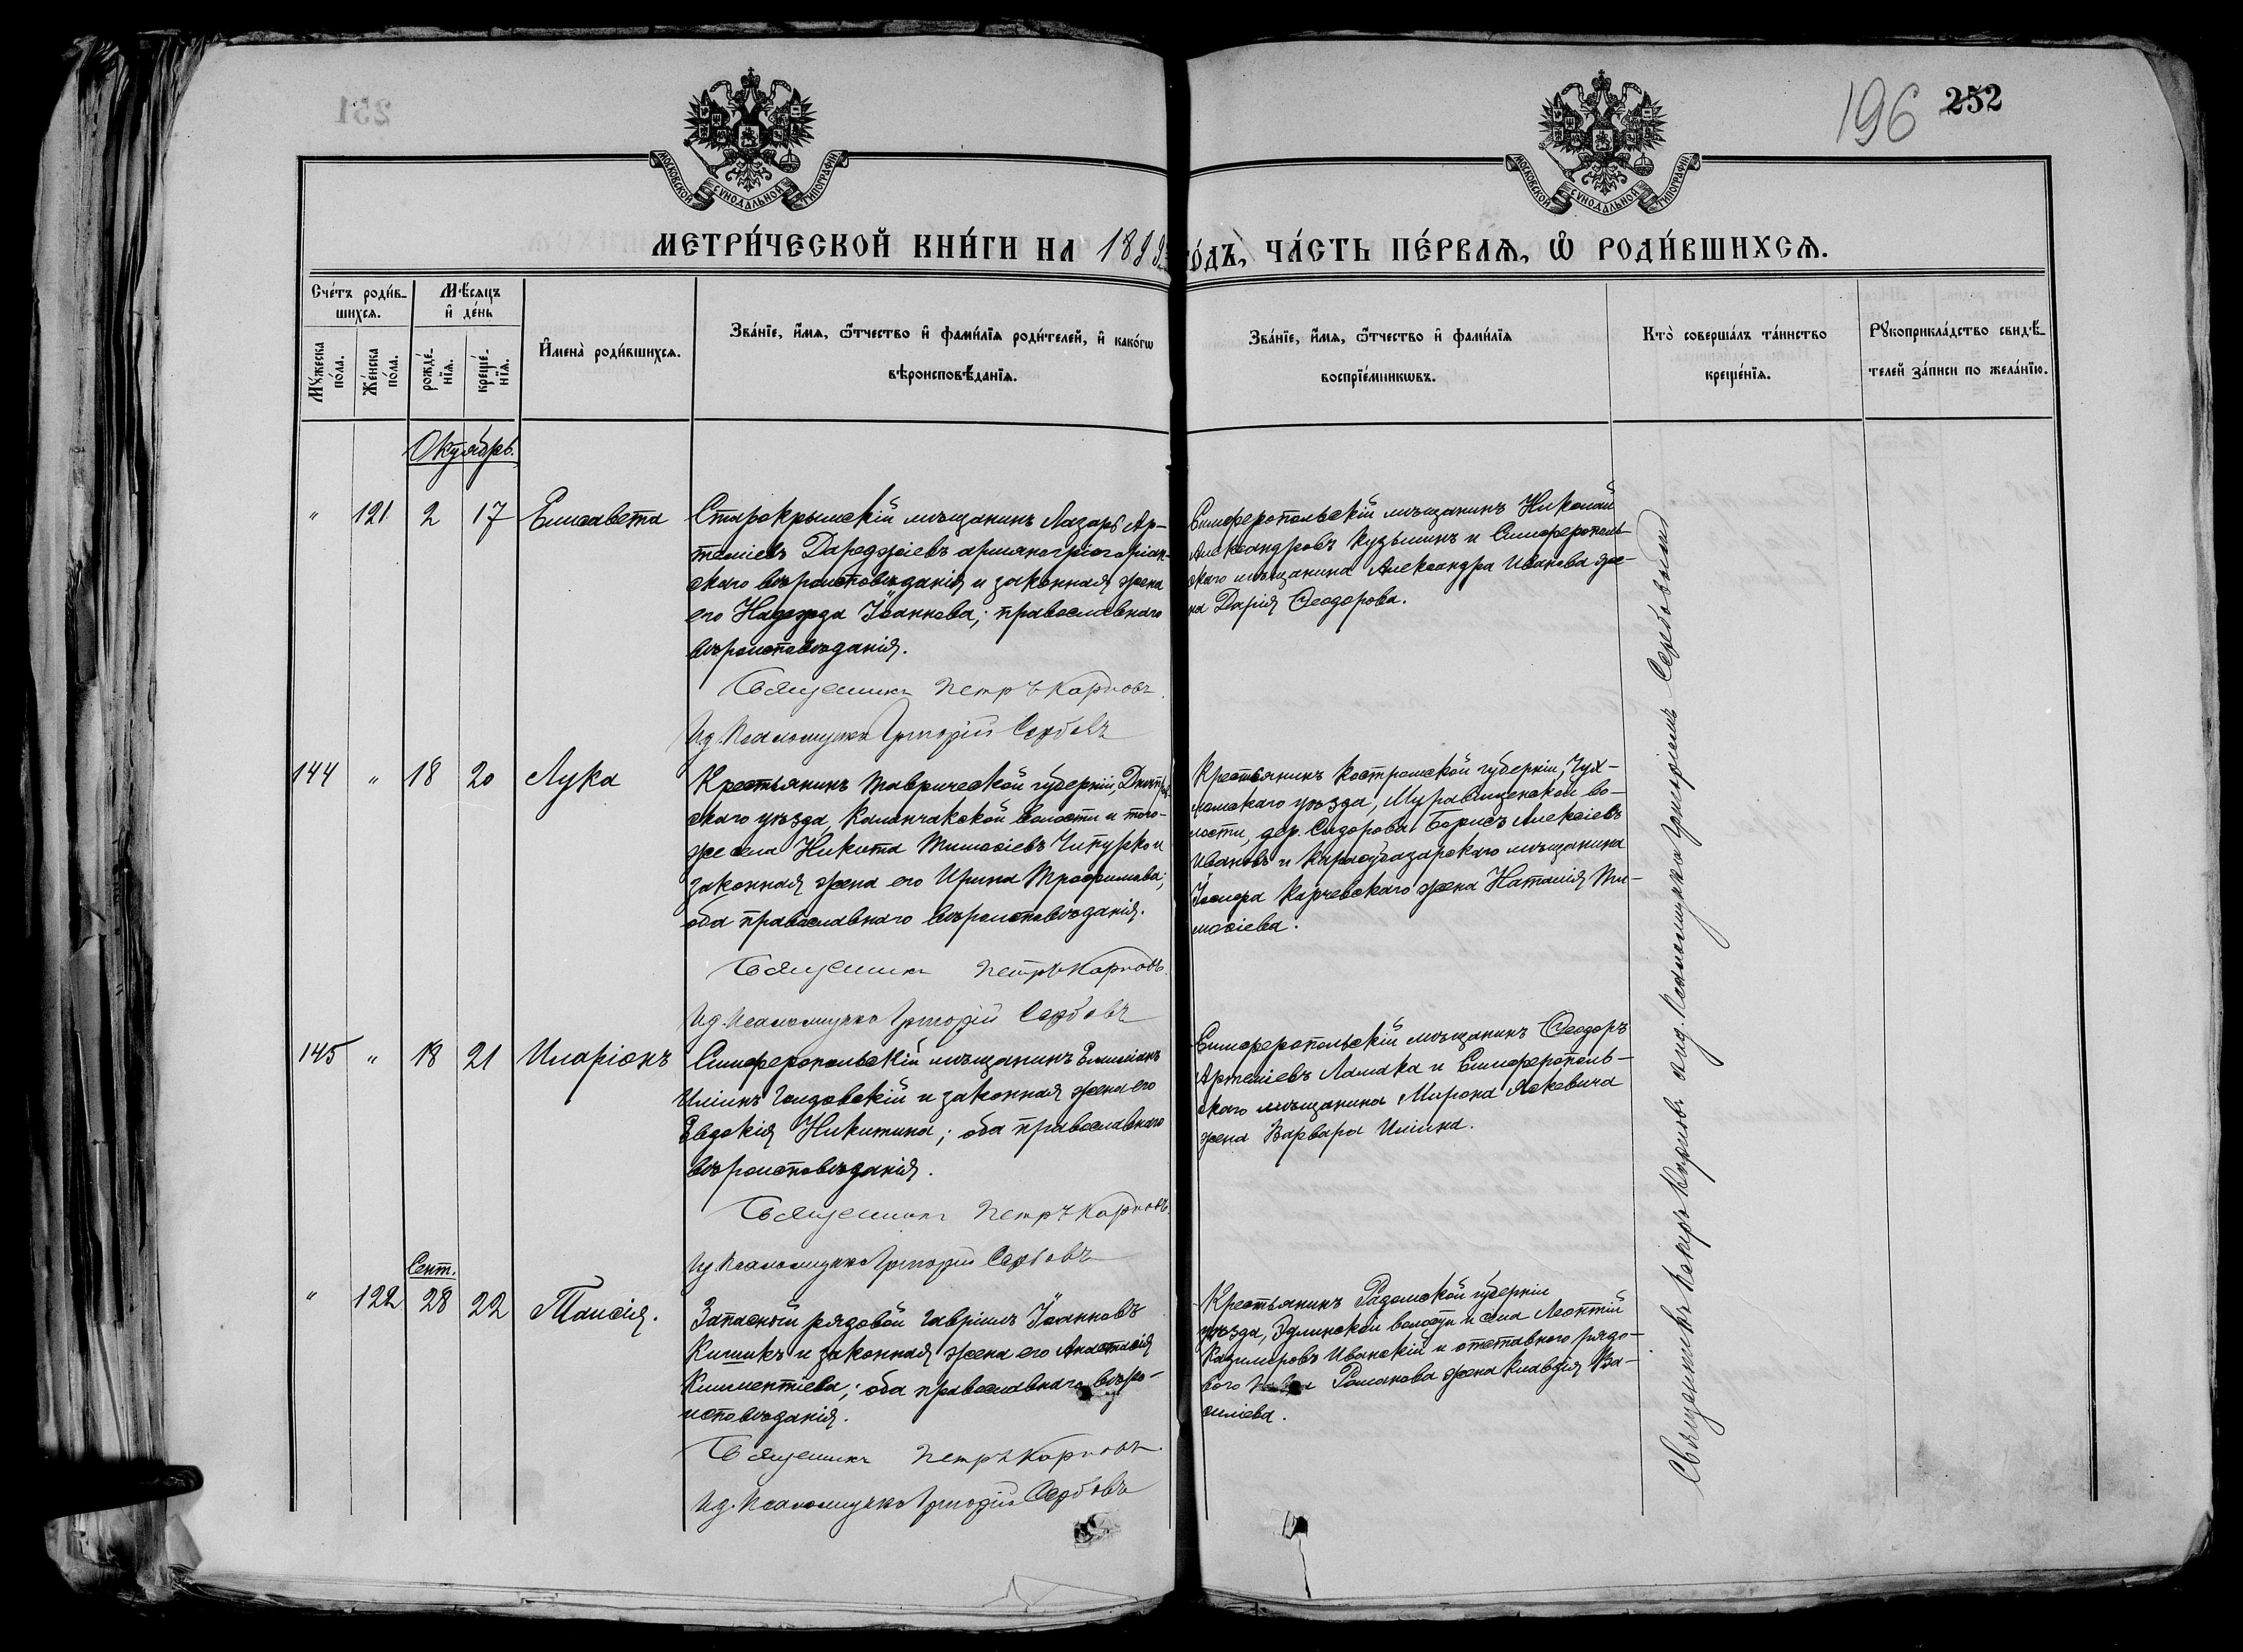 251
196 252
МОСКОВСКОЙ СѴНОДАЛЬНОЙ ТИПОГРАФІИ
МОСКОВСКОЙ СѴНОДАЛЬНОЙ ТИПОГРАФІИ
МЕТРИ́ЧЕСКОЙ КНИ́ГИ НА 1899 го́дъ, ЧА́СТЬ ПЕ́РВАѦ, Ѽ РОДИ́ВШИХСѦ.
Сче́тъ роди́в-
шихсѧ.
Мꙋ́жеска
по́ла.
Же́нска
по́ла.
Мѣ́сѧцъ
и҆ де́нь
рожде́-
нїѧ.
креще́-
нїѧ.
И҆мена̀ роди́вшихсѧ.
Зва́нїе, и҆́мѧ, ѻ҆́тчество и҆ фами́лїѧ роди́телей, и҆ како́гѡ
вѣроисповѣ́данїѧ.
Зва́нїе, и҆́мѧ, ѻ҆́тчество и҆ фами́лїѧ
воспрїе́мникѡвъ.
Кто̀ соверша́лъ та́инство
креще́нїѧ.
Рꙋкоприкла́дство свидѣ́-
телей за́писи по жела́нїю.
Октябрь.
" 121 2 17 Елисавета
Старокрымскій мѣщанинъ Лазарь Ар-
теміевъ Дареджіевъ армяногригоріан-
скаго вѣроисповѣданія и законная жена
его Надежда Іоаннова; православнаго
вѣроисповѣданія.
Священникъ Петръ Карповъ
Ид. Псаломщика Григорій Сербовъ
Симферопольскій мѣщанинъ Николай
Александровъ Кузьминъ и Симферополь-
скаго мѣщанина Александра Иванова же-
на Дарія Ѳеодорова.
144 " 18 20 Лука
Крестьянинъ Таврической губерніи, Днѣпров-
скаго уѣзда, Каланчакской волости и того-
же села Никита Тимоѳіевъ Чипурко и
законная жена его Ирина Трофимова;
оба православнаго вѣроисповѣданія.
Священникъ Петръ Карповъ.
Ид. Псаломщика Григорій Сербовъ
Крестьянинъ Костромской губерніи, Чух-
ломскаго уѣзда, Муравищенской во-
лости, дер. Сидорова Борисъ Алексіевъ
Ивановъ и Карасубазарскаго мѣщанина
Іосифа Карчевскаго жена Наталія Ти-
моѳіева.
145 " 18 21 Иларіонъ
Симферопольскій мѣщанинъ Емиліанъ
Иліинъ Голдовскій и законная жена его
Евдокія Никитина; оба православнаго
вѣроисповѣданія.
Священникъ Петръ Карповъ.
Ид. Псаломщика Григорій Сербовъ
Симферопольскій мѣщанинъ Ѳеодоръ
Артеміевъ Ламака и Симферополь-
скаго мѣщанина Мирона Яскевича
жена Варвара Иліина.
Сент.
" 122 28 22 Таисія.
Запасный рядовой Гавріилъ Іоанновъ
Кишикъ и законная жена его Анастасія
Климентіева; оба православнаго вѣро-
исповѣданія.
Священникъ Петръ Карповъ.
Ид. Псаломщика Григорій Сербовъ
Крестьянинъ Радомской губерніи
уѣзда, Эдлинской волости и села Леонтій
Казимировъ Иванскій и отставного рядо-
вого Романова жена Клавдія Ва-
силіева.
Священникъ Петръ Карповъ съ и.д. Псаломщика Григоріемъ Сербовымъ